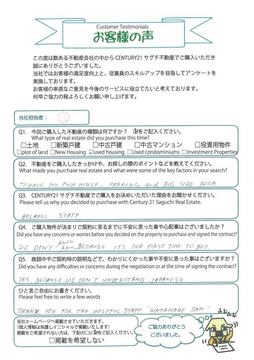 Customer Testimonials
お客様の声
この度は数ある不動産会社の中から CENTURY21 サグチ不動産でご購入いただき
誠にありがとうございました。
当社ではお客様の満足度向上と、従業員のスキルアップを目指してアンケートを
実施しております。
お客様の率直なご意見を今後のサービスに役立てたいと考えておりますので、
何卒ご協力の程よろしくお願い申し上げます。
当社担当者
Q1. 今回ご購入した不動産の種類は何ですか?をご記入ください。
What type of real estate did you purchase this time?
□土地 □新築戸建 □中古戸建 □中古マンション □投資用物件
plot of land New housed Used housed Used condominiums Investment Properties
Q2. 不動産をご購入したきっかけや、お探しの際のポイントなどを教えてください。
What made you purchase real estate and what were some of the key points in your search?
TO HAVE MY OWN HOUSE, PARKING AND BIG SIZE ROOM
Q3. CENTURY21 サグチ不動産でご購入をお決めいただいた理由をお聞かせください。
Please tell us why you decided to purchase with Century 21 Saguchi Real Estate.
HELPFUL STAFF
Q4. ご購入物件が決まりご契約に至るまでに不安に思った事や心配事はございましたか?
Did you have any concerns or worries before you decided on the property to purchase and signed the contract?
WE DON'T KNOW BECAUSE IT'S OUR FIRST TIME TO BUY
Did you have any difficulties or concerns during the negotiation or at the time of signing the contract?
YES, BECAUSE WE DON'T UNDERSTAND JAPANESE
ご自由にお書きください。
Please feel free to write a few words
THANK YOU FOR THE HELPFUL STAFF WATANABE SAN
当社ホームページへ掲載させていただきます。
□掲載を希望しない
ご協力ありがとう
ございました。